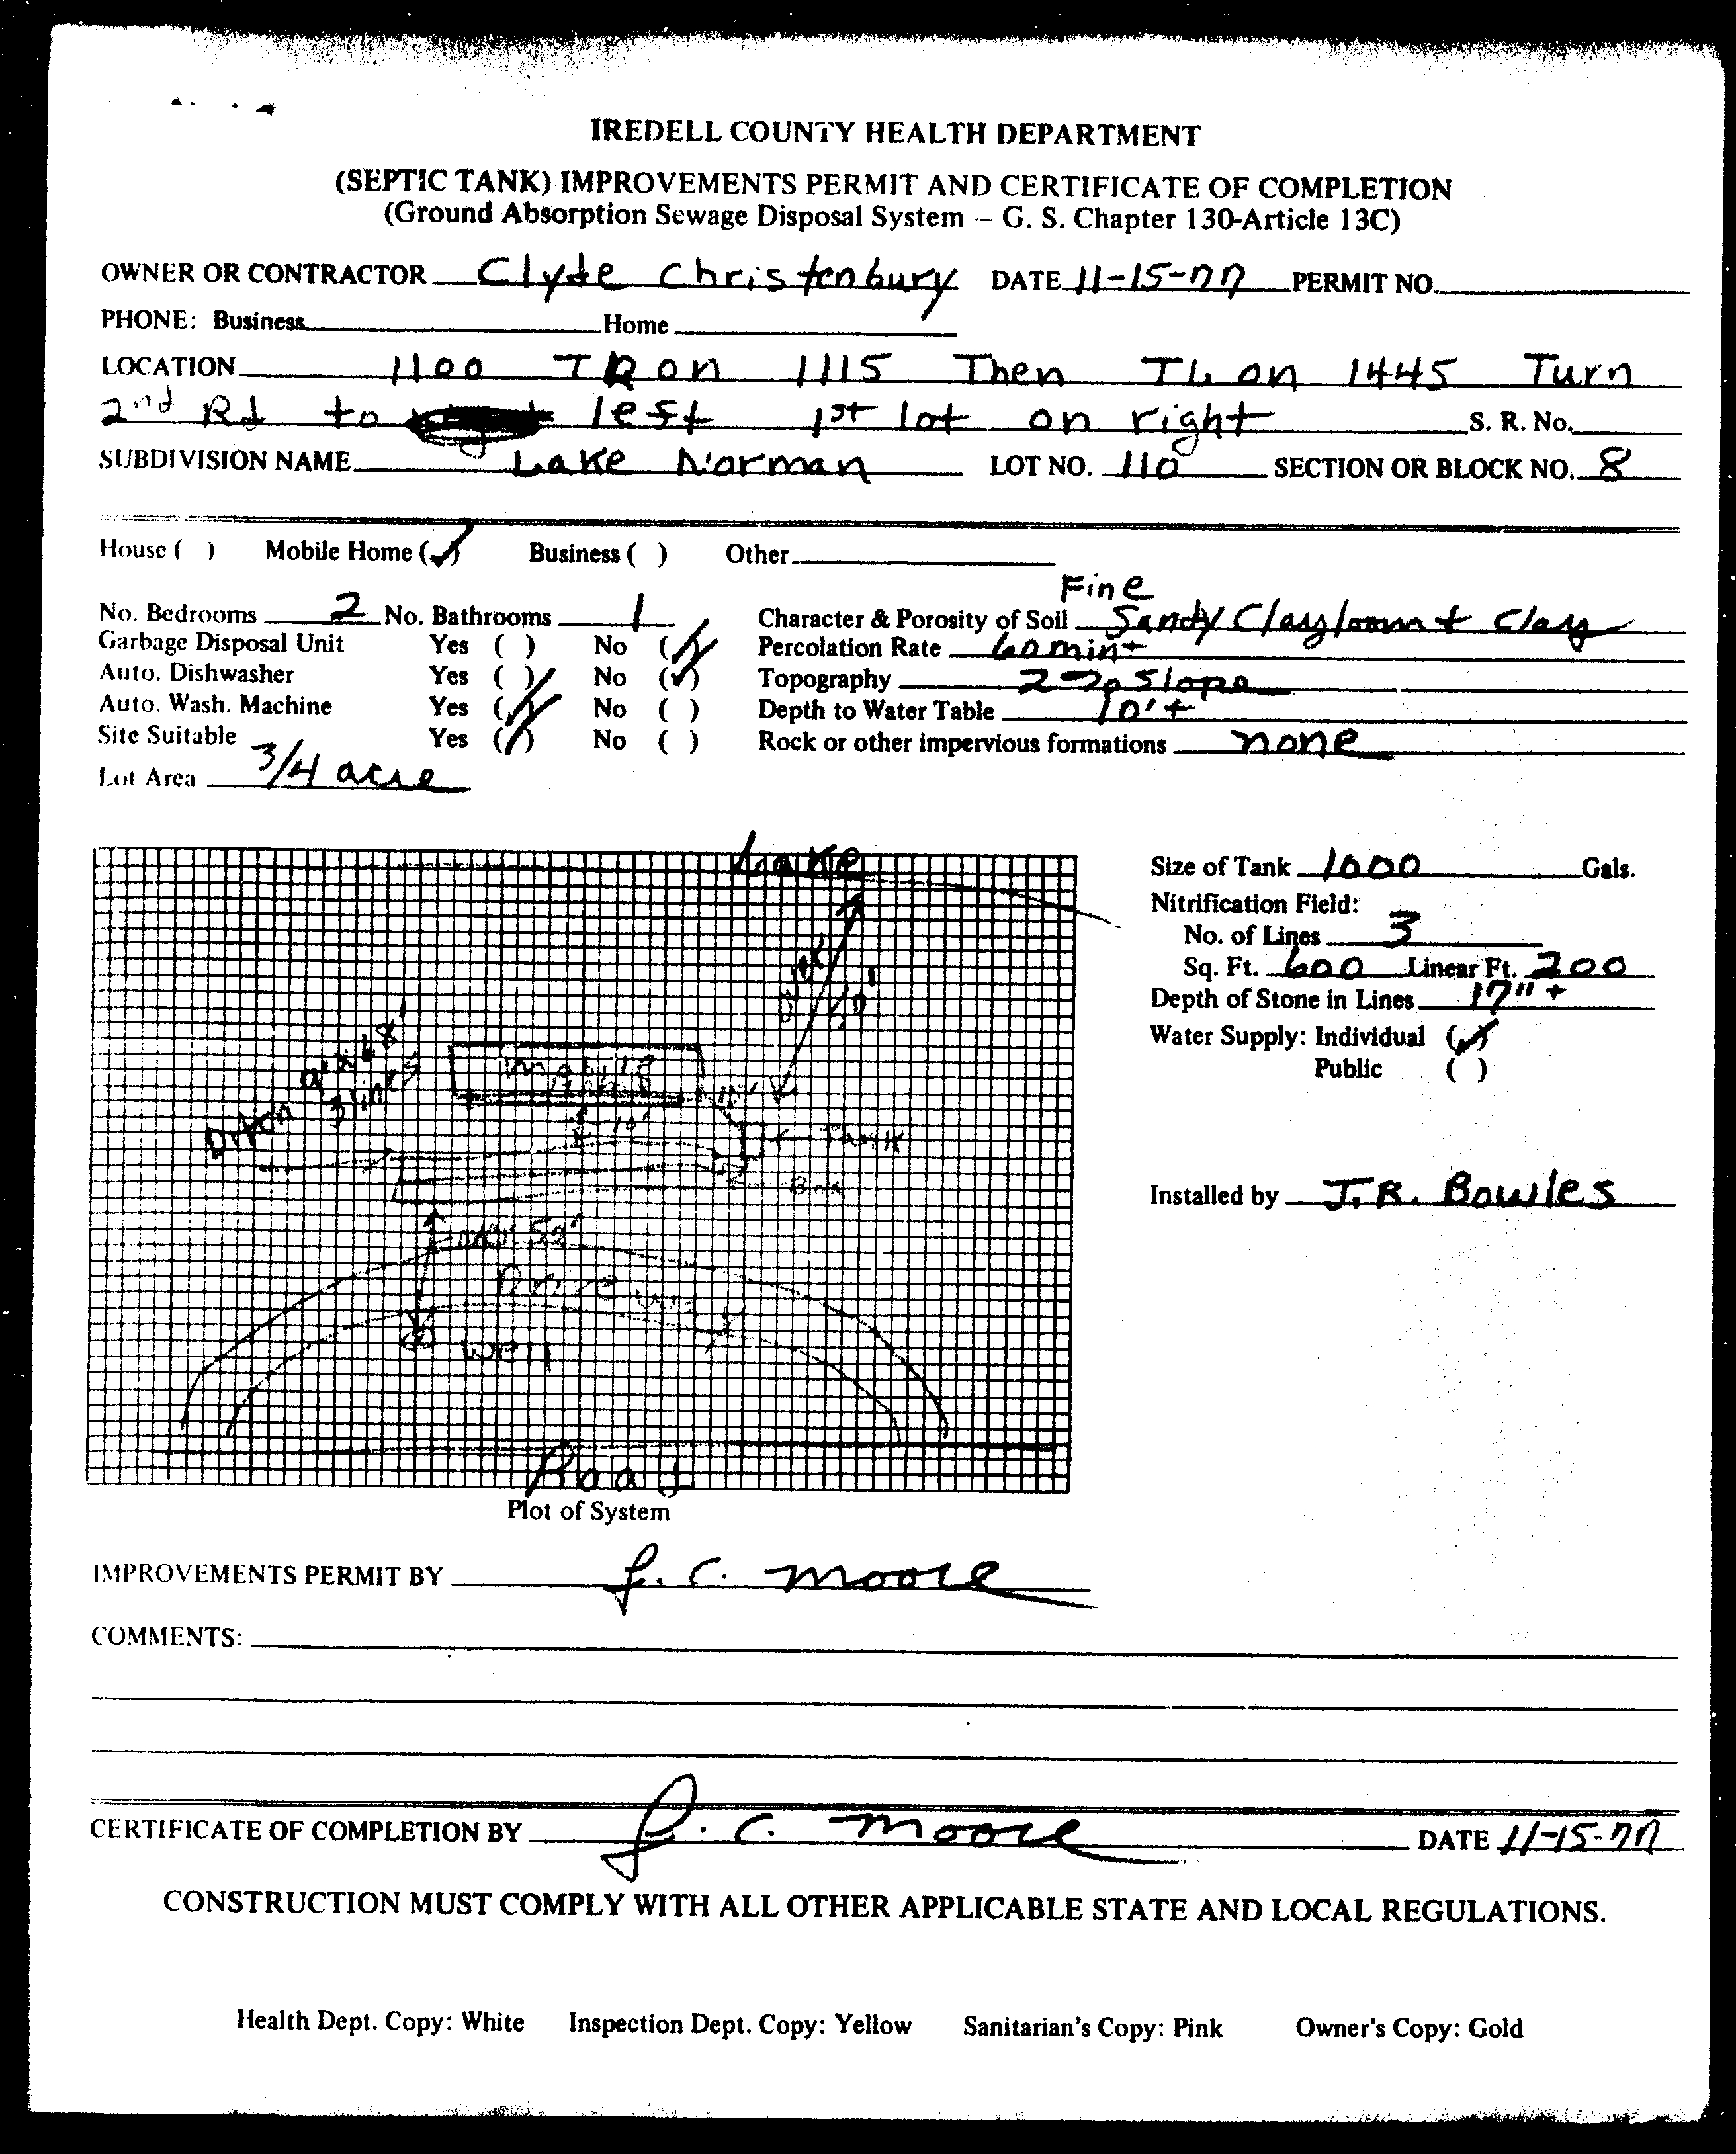 IREDELL COUNTY HEALTH DEPARTMENT
(SEPTIC TANK) IMPROVEMENTS PERMIT AND CERTIFICATE OF COMPLETION
(Ground Absorption Sewage Disposal System – G. S. Chapter 130-Article 13C)
OWNER OR CONTRACTOR Clyde Christenbury DATE 11-15-77 PERMIT NO.
PHONE: Business Home
LOCATION 1100 TR on 1115 Then TL on 1445 Turn
2nd Rd to left 1st lot on right S. R. No.
SUBDIVISION NAME Lake Norman LOT NO. 110 SECTION OR BLOCK NO. 8
House ( ) Mobile Home (✓) Business ( ) Other
Fine
No. Bedrooms 2 No. Bathrooms 1 Character & Porosity of Soil Sandy Clayloam + Clay
Garbage Disposal Unit Yes ( ) No (✓) Percolation Rate 60 min+
Auto. Dishwasher Yes ( ) No (✓) Topography 2% Slope
Auto. Wash. Machine Yes (✓) No ( ) Depth to Water Table 10'+
Site Suitable Yes (✓) No ( ) Rock or other impervious formations none
Lot Area 3/4 acre
Lake
Size of Tank 1000 Gals.
Nitrification Field:
No. of Lines 3
Sq. Ft. 600 Linear Ft. 200
Depth of Stone in Lines 17"+
Water Supply: Individual (✓)
Public ( )
over
3 lines
Mobile
10'
Tank
Box
Installed by J.R. Bowles
50'
Drive way
Well
Road
Plot of System
IMPROVEMENTS PERMIT BY J. C. Moore
COMMENTS:
CERTIFICATE OF COMPLETION BY J. C. Moore DATE 11-15-77
CONSTRUCTION MUST COMPLY WITH ALL OTHER APPLICABLE STATE AND LOCAL REGULATIONS.
Health Dept. Copy: White Inspection Dept. Copy: Yellow Sanitarian's Copy: Pink Owner's Copy: Gold